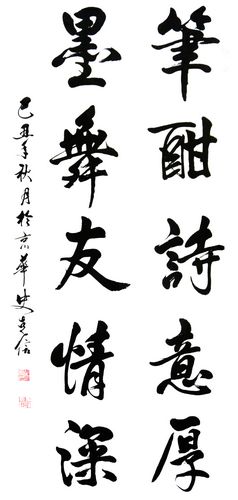 筆酣詩意厚
墨舞友情深
己丑年秋月於京華史志信